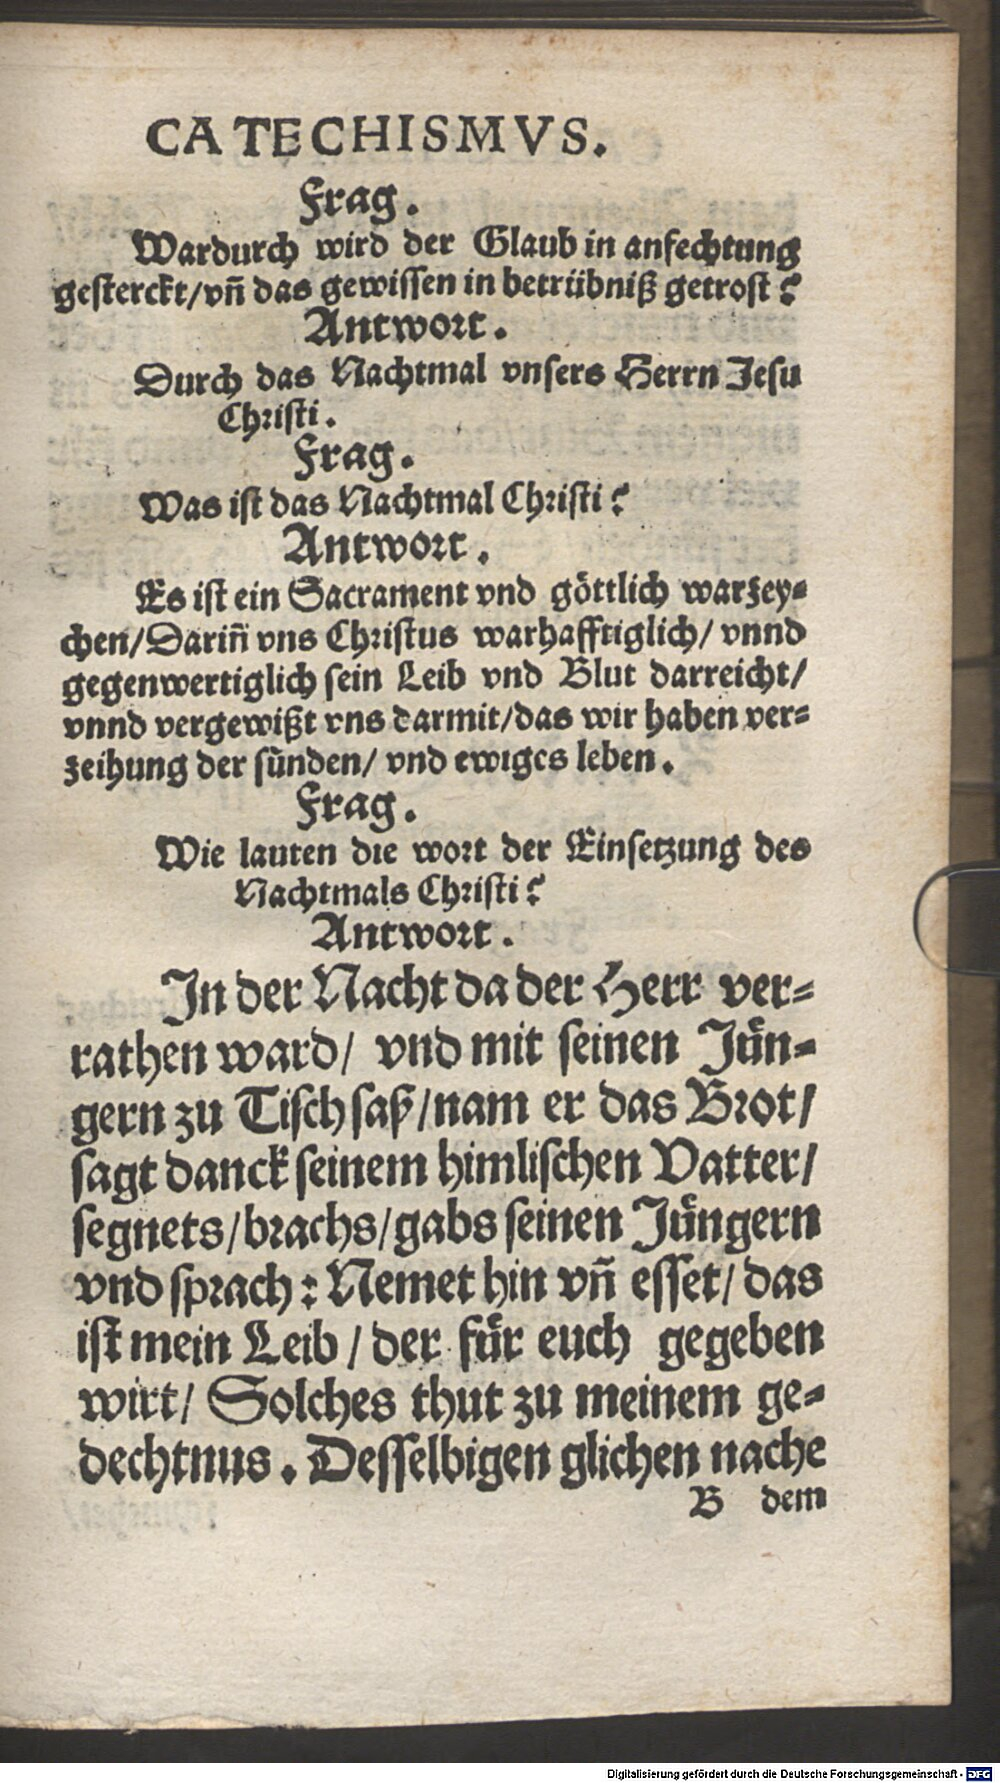 CATECHISMVS.
Frag.
Wardurch wird der Glaub in anfechtung
gesterckt/vñ das gewissen in betrübniß getrost?
Antwort.
Durch das Nachtmal vnsers Herrn Jesu
Christi.
Frag.
Was ist das Nachtmal Christi?
Antwort.
Es ist ein Sacrament vnd göttlich warzey-
chen/Dariñ vns Christus warhafftiglich/ vnnd
gegenwertiglich sein Leib vnd Blut darreicht/
vnnd vergewißt vns darmit/das wir haben ver-
zeihung der sünden/ vnd ewiges leben.
Frag.
Wie lauten die wort der Einsetzung des
Nachtmals Christi?
Antwort.
In der Nacht da der Herr ver-
rathen ward/ vnd mit seinen Jün-
gern zu Tisch saß/nam er das Brot/
sagt danck seinem himlischen Vatter/
segnets/brachs/gabs seinen Jüngern
vnd sprach: Nemet hin vñ esset/ das
ist mein Leib/ der für euch gegeben
wirt/ Solches thut zu meinem ge-
dechtnus. Desselbigen glichen nache
B dem
Digitalisierung gefördert durch die Deutsche Forschungsgemeinschaft - DFG